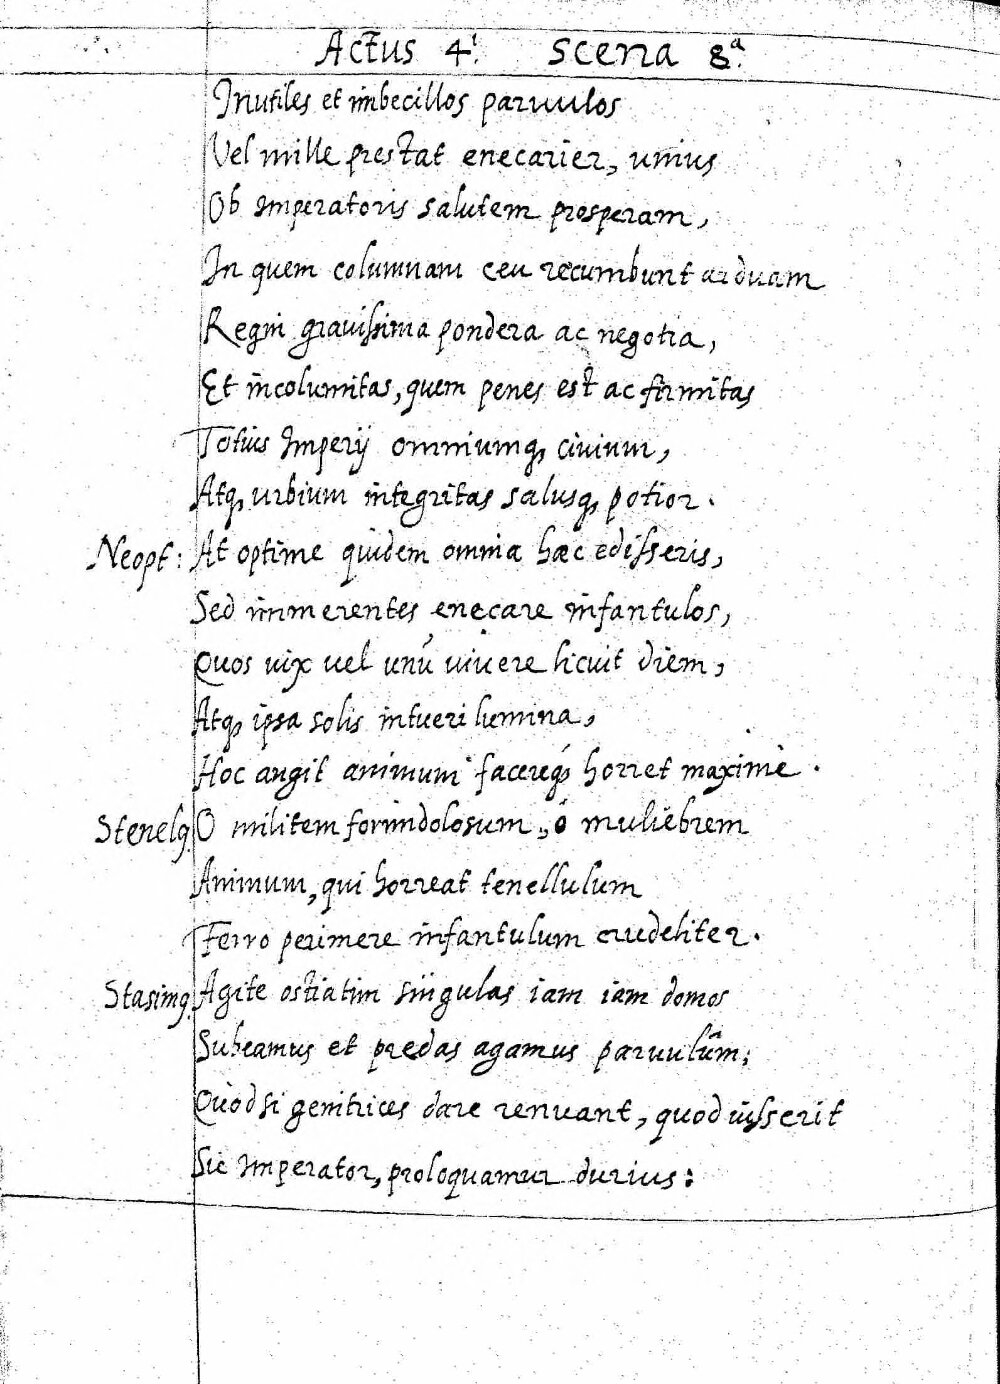 Actus 4.i Scena 8.a
Inutiles et imbecillos paruulos
Vel mille prestat enecarier, unius
Ob Imperatoris salutem prosperam,
In quem columnam ceu recumbunt arduam
Regni grauissima pondera ac negotia,
Et incolumitas, quem penes est ac firmitas
Totius Imperij omniumq, ciuium,
Atq, urbium integritas salusq, potior.
Neopt: At optime quidem omnia hæc edisseris,
Sed immerentes enecare infantulos,
Quos uix uel unū uiuere licuit diem,
Atq, ipsa solis intueri lumina,
Hoc angit animum facereq, horret maximè.
Stenelq. O militem formidolosum, ó muliebrem
Animum, qui horreat tenellulum
Ferro perimere infantulum crudeliter.
Stasimq. Agite ostiatim singulas iam iam domos
Subeamus et predas agamus paruulûm;
Quòd si genitrices dare renuant, quod iusserit
Sic Imperator, proloquamur durius: